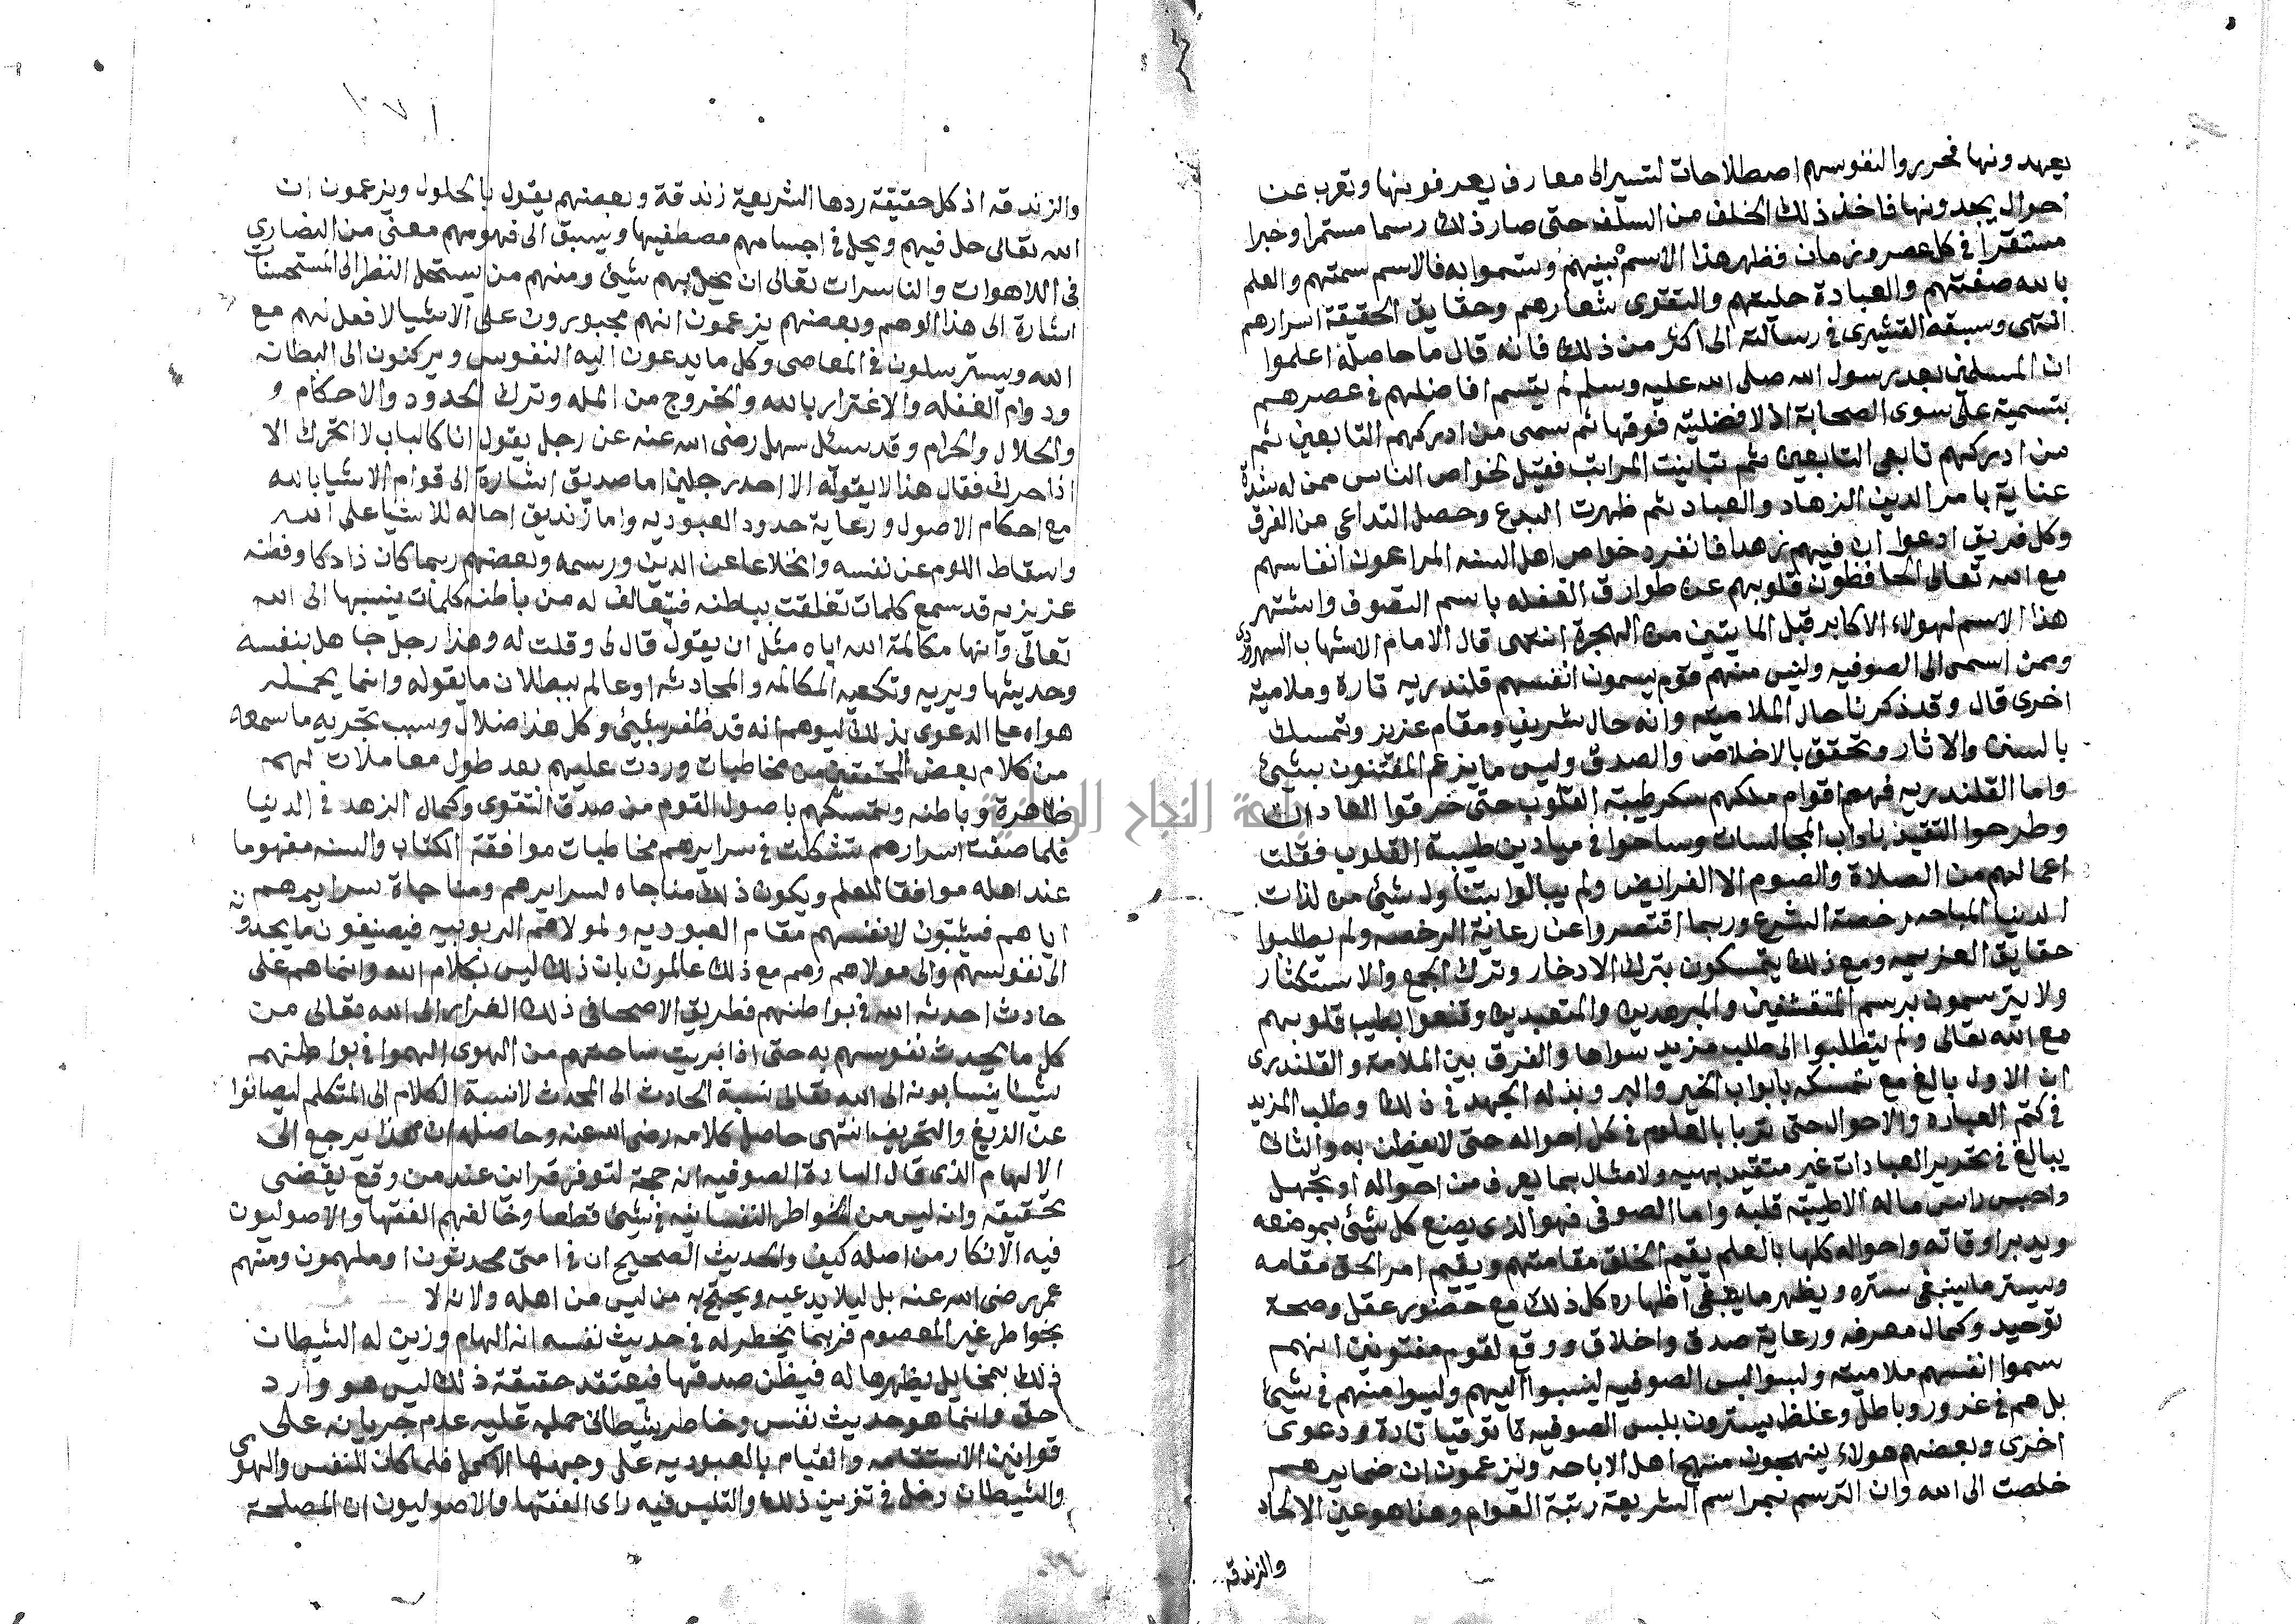 يعهدونها فحرروا لنفوسهم اصطلاحات لتسير الى معارف يعرفونها وتعرب عن
احوال يجدونها فاخذ ذلك الخلف من السلف حتى صار ذلك رسما مستمرا وخبرا
مستقرا في كل عصر وزمان فظهر هذا الاسم بينهم وتسموا به فالاسم سمتهم والعلم
بالله صفتهم والعبادة حليتهم والتقوى شعارهم وحقايق الحقيقة اسرارهم
انتهى وسبقه القشيرى في رسالته الى اكثر من ذلك فانه قال ما حاصله اعلموا
ان المسلمين بعد رسول الله صلى الله عليه وسلم لم يتسم افاضلهم في عصرهم
بتسمية على سوى الصحابة اذ لا افضلية فوقها ثم سمى من ادركهم التابعين ثم
من ادركهم تابعى التابعين ثم تباينت المراتب فقيل لخواص الناس ممن له شدة
عناية بامر الدين الزهاد والعباد ثم ظهرت البدع وحصل التداعى من الفرق
وكل فريق ادعوا ان فيهم زهدا فانفرد خواص اهل السنه المراعون انفاسهم
مع الله تعالى الحافظون قلوبهم عن طوارق الغفله باسم التصوف واشتهر
هذا الاسم لهولاء الاكابر قبل المايتين من الهجرة انتهى قال الامام الشهاب السهروردى
وممن اسمى الى الصوفيه وليس منهم قوم يسمون انفسهم قلندريه تارة وملامية
اخرى قال وقد ذكرنا حال الملاميه وانه حال شريف ومقام عزيز وتمسك
بالسنن والاثار وتحقق بالاخلاص والصدق وليس ما يزعم المفتنون بشيئ
واما القلندريه فهم اقوام ملكهم سكر طيبة القلوب حتى خرقوا العادات
وطرحوا التقيد باداب المجالسات وساحوا في ميادين طيبة القلوب فقلت
اعمالهم من الصلاة والصوم الا الفرايض ولم يبالوا بتناول شيئ من لذات
الدنيا المباحه رخصة الشرع وربما اقتصروا عن رعاية الرخصه ولم يطلبوا
حقايق العزيمه ومع ذلك يتمسكون بترك الادخار وترك الجمع والاستكثار
ولا يترسمون برسم المتقشفين والمبرهدين والمتعبدين وقنعوا بطيب قلوبهم
مع الله تعالى ولم يتطلبوا الى طلب مزيد سواها والفرق بين الملامة والقلندرى
ان الاول بالغ مع تمسكه بابواب الخير والبر وبذله الجهد في ذلك وطلب المزيد
في كتم العباده والاحوال حتى تزيا بالعلوم في كل احواله حتى لا يفطن به والثانى
يبالغ في تخرير العبادات غير متقيد بهيه ولا مثال بما يعرف من احواله او يجهل
واحبس راس ماله الا طيبة قلبه واما الصوفى فهو الذى يصنع كل شيئ بموضعه
ويدبر اوقاته واحواله كلها بالعلم يقيم الخلق مقامتهم ويقيم امر الحق مقامه
ويستر ما ينبغى ستره ويظهر ما ينبغى اظهاره كل ذلك مع حضور عقل وصحة
توحيد وكمال معرفه ورعاية صدق واخلاق ووقع لقوم مفتونين انهم
سموا انفسهم ملاميه ولبسوا لبس الصوفيه لينسبوا اليهم وليسوا منهم في شيئ
بل هم في غرور وباطل وغلط يسترون بلبس الصوفيه تا توقيا تارة ودعوى
اخرى وبعضهم هولاء ينهجون منهج اهل الاباحه ويزعمون ان ضمايرهم
خلصت الى الله وان الترسم بمراسم الشريعة رتبة العوام وهذا هو عين الالحاد
والزندقه
والزندقه اذ كل حقيقة ردها الشريعة زندقة وبعضهم يقول بالحلول ويزعمون ان
الله تعالى حل فيهم ويحل في اجسامهم مصطفيها ويسبق الى فهومهم معنى من النصارى
في اللاهوات والناسرات تعالى ان يحل بهم شيئ ومنهم من يستحل النظر الى المستحسنات
اشارة الى هذا الوهم وبعضهم يزعمون انهم مجبورون على الاشيا لا فعل لهم مع
الله ويسترسلون في المعاصى وكل ما يدعون اليه النفوس ويركنون الى البطانه
ودوام الغفله والاغترار بالله والخروج من المله وترك الحدود والاحكام و
والحلال والحرام وقد سئل سهل رضى الله عنه عن رجل يقول انا كالباب لا اتحرك الا
اذا حرك فقال هذا لا يقوله الا احد رجلين اما صديق اشارة الى قوام الاشيا بالله
مع احكام الاصول ورعاية حدود العبوديه واما زنديق احاله للاشيا على الله
واسقاط اللوم عن نفسه وانخلاعا عن الدين ورسمه وبعضهم ربما كان ذا دكا وفطنه
عزيزيه قد سمع كلمات تعلقت بباطنه فيتعالف له من باطنه كلمات ينسبها الى الله
تعالى وانها مكالمة الله اياه مثل ان يقول قال لى وقلت له وهذا رجل جاهل بنفسه
وحديثها وبربه وتكعيه المكالمه والمحادثه او عالم ببطلان ما يقوله وانما يحمله
هواه على الدعوى بذلك ليوهم انه قد ظفر بشيئ وكل هذا ضلال وسبب تجريه ما سمعه
من كلام بعض المحققين من مخاطبات وردت عليهم بعد طول معاملات لهم
ظاهرة وباطنه وتمسكهم باصول القوم من صدق التقوى وكمال الزهد في الدنيا
فلما صفت اسرارهم تشكلت في سرايرهم مخاطبات موافقة الكتاب والسنه مفهوما
عند اهله موافقا للعلم ويكون ذلك مناجاه لسرايرهم ومناجاة سرايرهم
اياهم فيثبتون لانفسهم مقام العبوديه ولمولاهم الربوبيه فيضيفون ما يجدونه
الى نفوسهم والى مولاهم وهم مع ذلك عالمون بان ذلك ليس بكلام الله وانما هم على
حادث احدثه الله في بواطنهم فطريق الاصحا في ذلك الفرار الى الله تعالى من
كل ما يحدث نفوسهم به حتى اذا بريت ساحتهم من الهوى الهموا في بواطنهم
شيئا ينسبونه الى الله تعالى نسبة الحادث الى المحدث لا نسبة الكلام الى المتكلم ليصانوا
عن الزيغ والتحريف انتهى حاصل كلامه رضى الله عنه وحاصله ان هذا يرجع الى
الالهام الذى قال السادة الصوفيه انه حجة لتوفر قراين عند من وقع يقضى
بحقيقته وانه ليس من الخواطر النفسانيه في شيئ قطعا وخالفهم الفقها والاصوليون
فيه الانكار من اصله كيف والحديث الصحيح ان في امتى محدثون او ملهمون ومنهم
عمر رضى الله عنه بل ليلا يدعيه ويحتج به من ليس من اهله ولانه لا
بخواطر غير المعصوم فربما يخطر له في حديث نفسه انه الهام وزين له الشيطان
ذلك بمخايل يظهرها له فيظن صدقها فيعتقد حقيقة ذلك ليس هو وارد
حق وانما هو حديث نفس وخاطر شيطانى حمله عليه عدم جريانه على
قوانين الاستقامه والقيام بالعبوديه على وجهها الاكمل فلما كان للنفس والهوى
والشيطان دخل في تزيين ذلك والتلبس فيه راى الفقها والاصوليون ان المصلحة
جامعة النجاح الوطنية